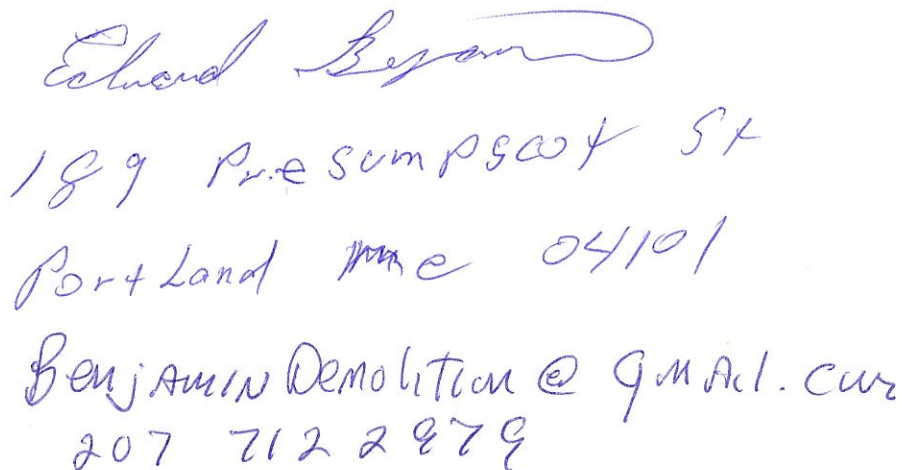 Edward Benjamin
189 Presumpscot St
Portland me 04101
BenjAMINDemolition@gmAil.com
207 712 2979